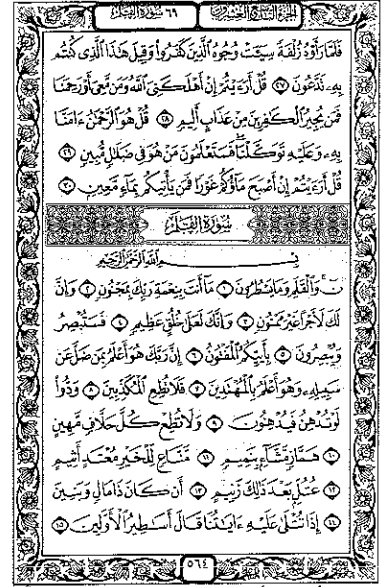 الجزء التاسع والعشرون ٦٩ سورة القلم
فَلَمَّا رَأَوْهُ زُلْفَةً سِيٓـَٔتْ وُجُوهُ ٱلَّذِينَ كَفَرُوا۟ وَقِيلَ هَٰذَا ٱلَّذِى كُنتُم
بِهِۦ تَدَّعُونَ ٢٧ قُلْ أَرَءَيْتُمْ إِنْ أَهْلَكَنِىَ ٱللَّهُ وَمَن مَّعِىَ أَوْ رَحِمَنَا
فَمَن يُجِيرُ ٱلْكَٰفِرِينَ مِنْ عَذَابٍ أَلِيمٍ ٢٨ قُلْ هُوَ ٱلرَّحْمَٰنُ ءَامَنَّا
بِهِۦ وَعَلَيْهِ تَوَكَّلْنَا فَسَتَعْلَمُونَ مَنْ هُوَ فِى ضَلَٰلٍ مُّبِينٍ ٢٩
قُلْ أَرَءَيْتُمْ إِنْ أَصْبَحَ مَآؤُكُمْ غَوْرًا فَمَن يَأْتِيكُم بِمَآءٍ مَّعِينٍۭ ٣٠
سُورَةُ القَلَمِ
بِسْمِ ٱللَّهِ ٱلرَّحْمَٰنِ ٱلرَّحِيمِ
نٓ وَٱلْقَلَمِ وَمَا يَسْطُرُونَ ١ مَآ أَنتَ بِنِعْمَةِ رَبِّكَ بِمَجْنُونٍ ٢ وَإِنَّ
لَكَ لَأَجْرًا غَيْرَ مَمْنُونٍ ٣ وَإِنَّكَ لَعَلَىٰ خُلُقٍ عَظِيمٍ ٤ فَسَتُبْصِرُ
وَيُبْصِرُونَ ٥ بِأَييِّكُمُ ٱلْمَفْتُونُ ٦ إِنَّ رَبَّكَ هُوَ أَعْلَمُ بِمَن ضَلَّ عَن
سَبِيلِهِۦ وَهُوَ أَعْلَمُ بِٱلْمُهْتَدِينَ ٧ فَلَا تُطِعِ ٱلْمُكَذِّبِينَ ٨ وَدُّوا۟
لَوْ تُدْهِنُ فَيُدْهِنُونَ ٩ وَلَا تُطِعْ كُلَّ حَلَّافٍ مَّهِينٍ
١٠ هَمَّازٍ مَّشَّآءٍۭ بِنَمِيمٍ ١١ مَّنَّاعٍ لِّلْخَيْرِ مُعْتَدٍ أَثِيمٍ
١٢ عُتُلٍّۭ بَعْدَ ذَٰلِكَ زَنِيمٍ ١٣ أَن كَانَ ذَا مَالٍ وَبَنِينَ
١٤ إِذَا تُتْلَىٰ عَلَيْهِ ءَايَٰتُنَا قَالَ أَسَٰطِيرُ ٱلْأَوَّلِينَ ١٥
٥٦٤